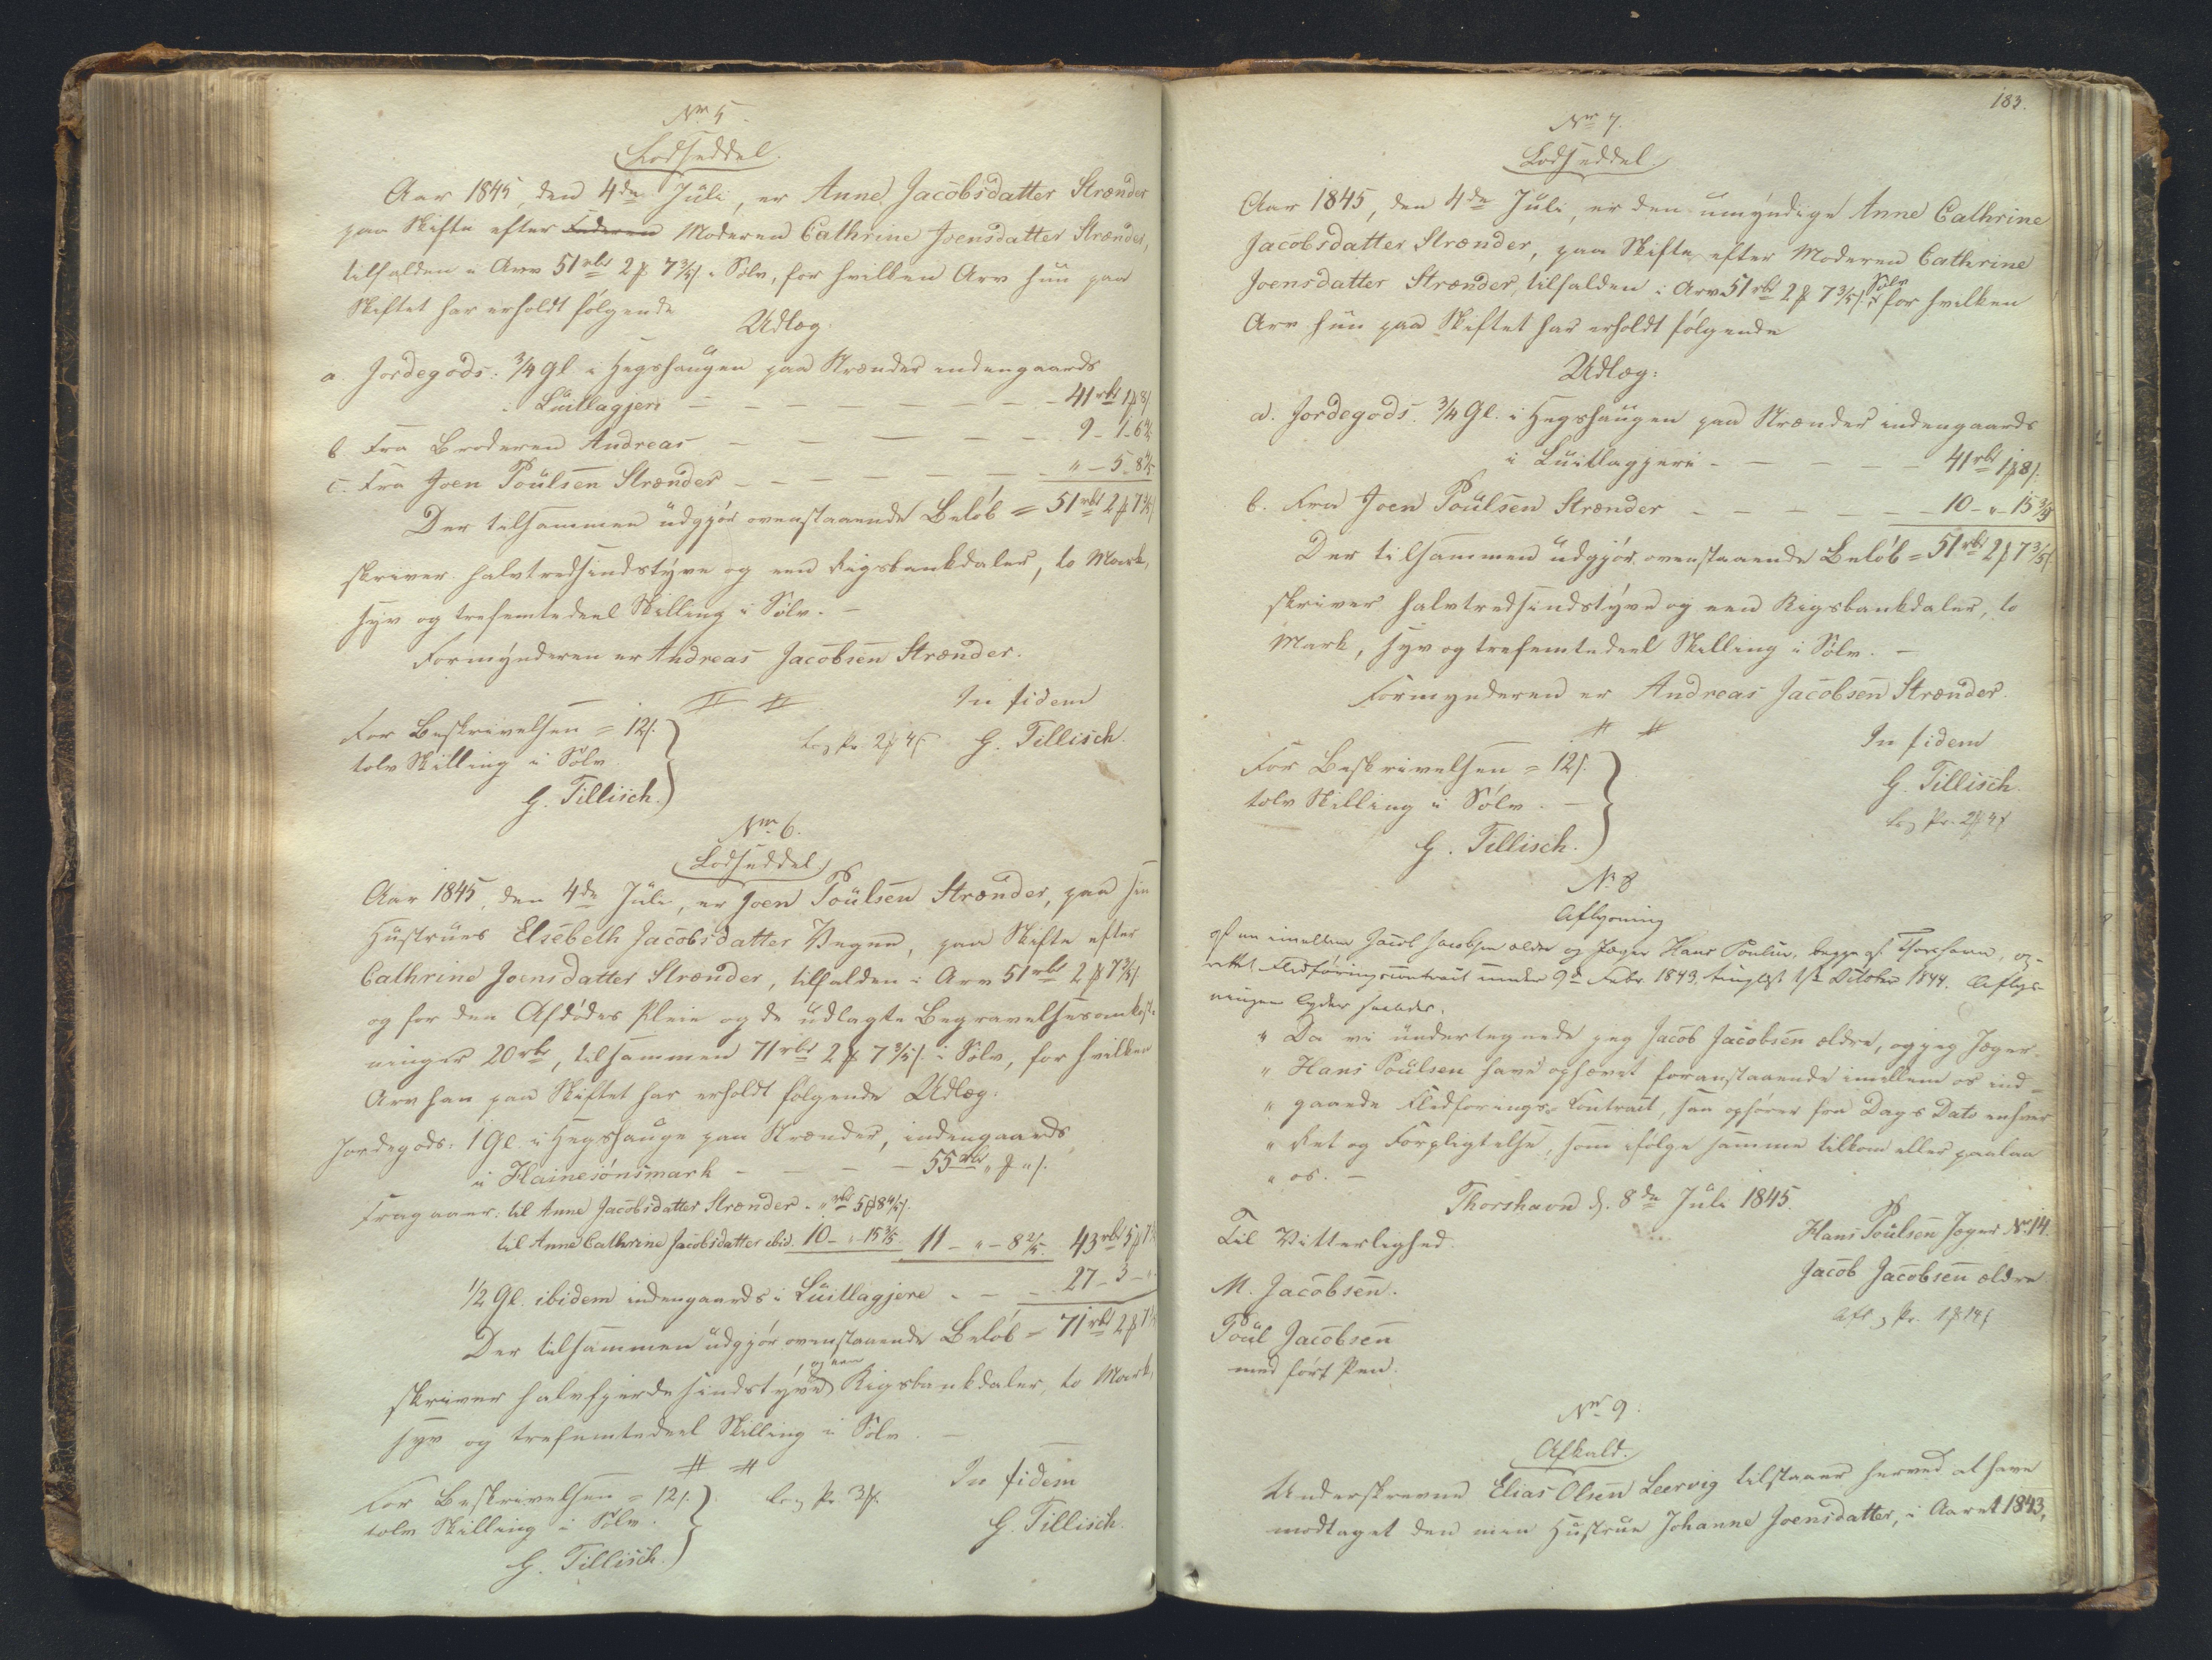 Nr. 5.
Lodseddel.
Aar 1845, den 4de Juli, er Anne Jacobsdatter Strænder
paa Skifte efter Faderen Moderen Cathrine Joensdatter Strænder,
tilfalden i Arv 51 rbd 2 ₰ 7 3/5 s. i Sølv, for hvilken Arv hun paa
Skiftet har erholdt følgende
Udlæg:
a. Jordegods: 3/4 Gl. i Hegshaugen paa Strænder indengaards
i Luitlagjeri - - - - - - 41 rbd 1 ₰ 8 s.
b. Fra Broderen Andreas - - - - - 9 - 1 - 6 4/5
c. Fra Joen Poulsen Strænder - - - - - " - 5 - 8 4/5
Der tilsammen udgjør ovenstaaende Beløb = 51 rbd 2 ₰ 7 3/5 s.
skriver halvtredsindstyve og een Rigsbankdaler, to Mark,
syv og trefemtedeel Skilling i Sølv. -
Formynderen er Andreas Jacobsen Strænder.
In fidem
For Beskrivelsen = 12 s.
tolv Skilling i Sølv.
G. Tillisch.
2 ₰ 4 s G. Tillisch.
Nr. 6.
Lodseddel
Aar 1845, den 4de Juli, er Joen Poulsen Strænder, paa sin
Hustrues Elsebeth Jacobsdatters Vegne, paa Skifte efter
Cathrine Joensdatter Strænder, tilfalden i Arv 51 rbd 2 ₰ 7 3/5 s.
og for den Afdødes Pleie og de udlagte Begravelsesomkost-
ninger 20 rbd, tilsammen 71 rbd 2 ₰ 7 3/5 s. i Sølv, for hvilken
Arv han paa Skiftet har erholdt følgende Udlæg:
Jordegods: 1 Gl. i Hegshauge paa Strænder, indengaards,
i Hainesónsmark - - - - 55 rbd " ₰ " s.
Fragaaer: til Anne Jacobsdatter Strænder - " rbd 5 ₰ 8 4/5 s.
til Anne Cathrine Jacobsdatter ibid. 10 - " - 15 3/5 11 - " - 8 2/5 43 rbd 5 ₰ 7
1/2 Gl. ibidem indengaards i Luitlagjere - - - 27 - 3 - "
Der tilsammen udgjør ovenstaaende Beløb = 71 rbd 2 ₰ 7
skriver halvfjerdesindstyve og een Rigsbankdaler, to Mark,
syv og trefemtedeel Skilling i Sølv. -
In fidem
For Beskrivelsen = 12 s.
tolv Skilling i Sølv.
G. Tillisch.
3 ₰.
G. Tillisch.
183.
Nr. 7.
Lodseddel.
Aar 1845, den 4de Juli, er den umyndige Anne Cathrine
Jacobsdatter Strænder, paa Skifte efter Moderen Cathrine
Joensdatter Strænder, tilfalden i Arv 51 rbd 2 ₰ 7 3/5 s. i Sølv for hvilken
Arv hun paa Skiftet har erholdt følgende
Udlæg:
a. Jordegods: 3/4 Gl. i Hegshaugen paa Strænder indengaards
i Luitlagjeri - - - - - 41 rbd 1 ₰ 8 s.
b. Fra Joen Poulsen Strænder - - - - - 10 - " - 15 3/5
Der tilsammen udgjør ovenstaaende Beløb = 51 rbd 2 ₰ 7 3/5 s.
skriver halvtredsindstyve og een Rigsbankdaler, to
Mark, syv og trefemtedeel Skilling i Sølv. -
Formynderen er Andreas Jacobsen Strænder.
In fidem
For Beskrivelsen = 12 s.
tolv Skilling i Sølv. -
G. Tillisch.
G. Tillisch.
2 ₰ 4 s
Nr. 8
Aflysning
af en imellem Jacob Jacobsen ældre og Jæger Hans Poulsen, begge af Thorshavn, op-
rettet Fledføringscontract under 9de Febr. 1843, tinglæst 1ste October 1844. Aflys-
ningen lyder saaledes:
" Da vi undertegnede jeg Jacob Jacobsen ældre, og jeg Jæger
" Hans Poulsen have ophævet foranstaaende imellem os ind-
" gaaede Fledførings-Contract, saa ophører fra Dags Dato enhver
" Ret og Forpligtelse, som ifølge samme tilkom eller paalaa
" os. -
Thorshavn d. 8de Juli 1845.
Til Vitterlighed
Hans Poulsen Jæger No. 14.
M. Jacobsen.
Jacob Jacobsen ældre
Poul Jacobsen
1 ₰ 14 s
med ført Pen.
Nr. 9.
Afkald.
Underskrevne Elias Olsen Leervig tilstaaer herved at have
modtaget den min Hustrue Johanne Joensdatter, i Aaret 1843,